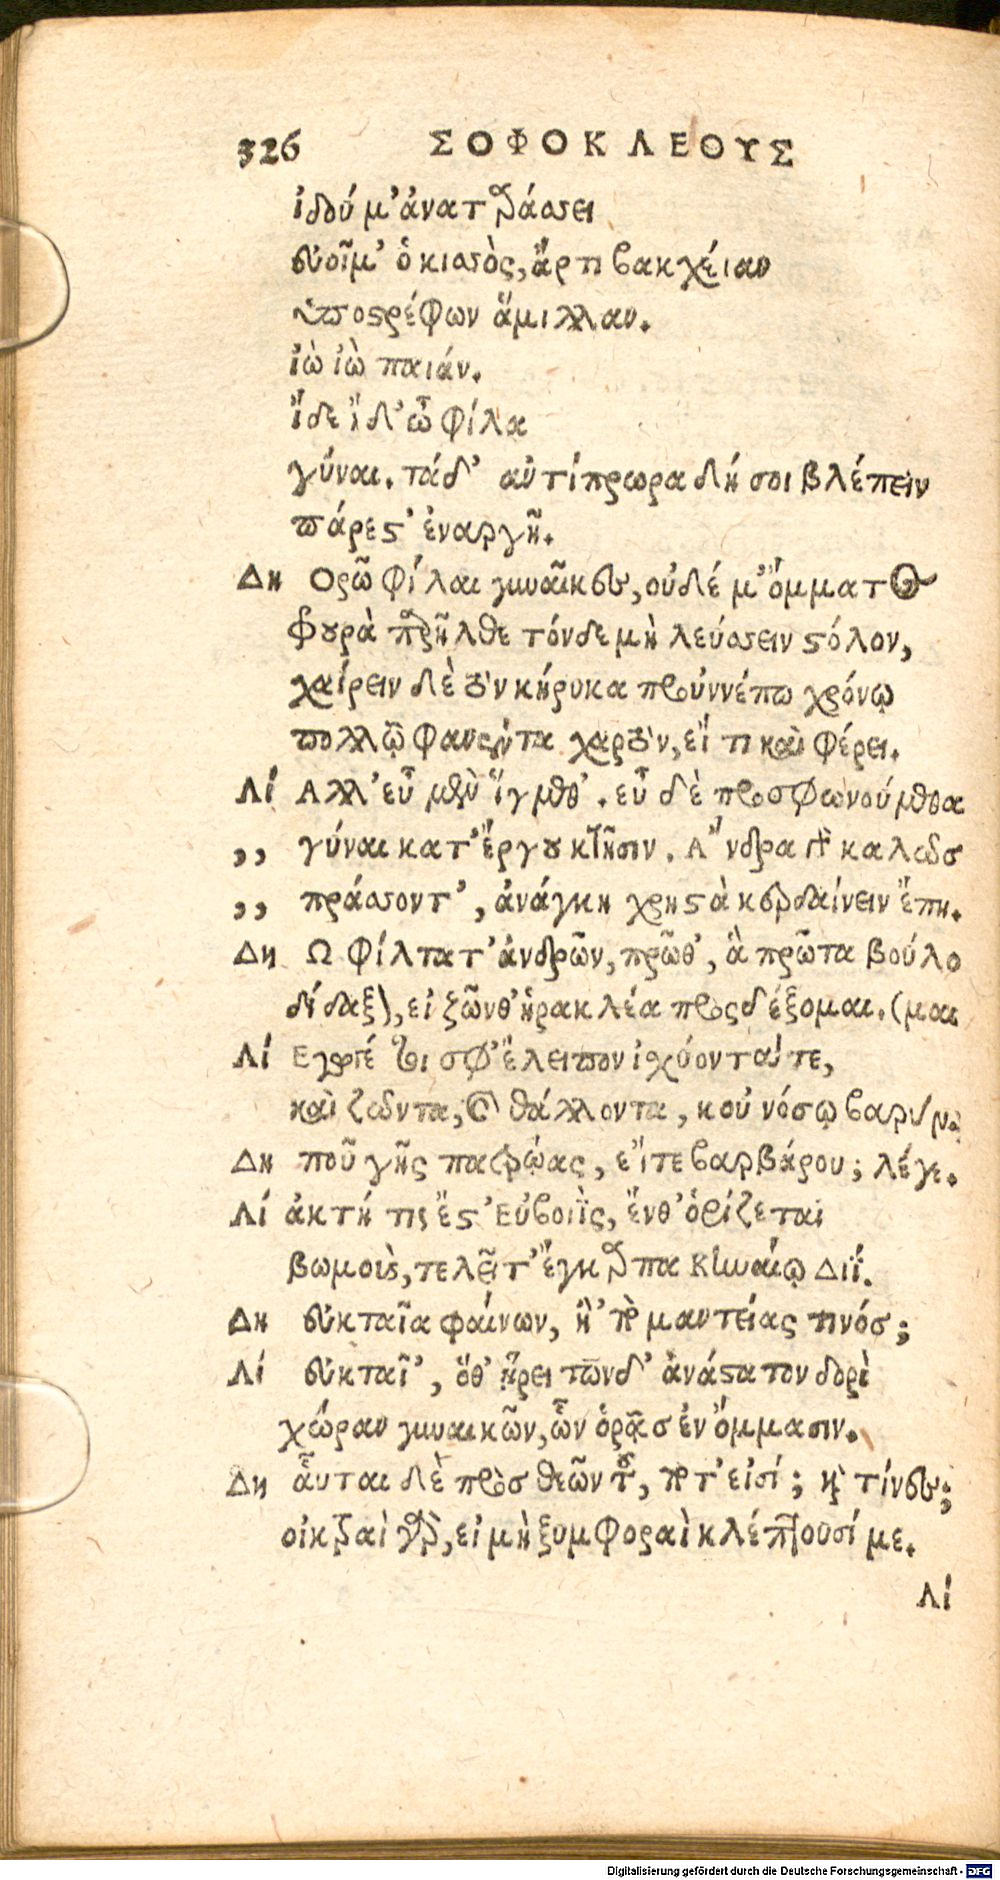 326 ΣΟΦΟΚΛΕΟΥΣ
ἰδού μ' ἀναταράσσει
εὐοῖμ' ὁ κισσὸς, ἄρτι βακχείαν
ὑποστρέφων ἅμιλλαν.
ἰὼ ἰὼ παιάν.
ἴδε ἴδ' ὦ φίλα
γύναι. τάδ' ἀντίπρωρα δή σοι βλέπειν
πάρεστ' ἐναργῆ.
Δη Ορῶ φίλαι γυναῖκες, οὐδέ μ' ὄμματος
φρουρὰ παρῆλθε τόνδε μὴ λεύσσειν στόλον,
χαίρειν δὲ τὸν κήρυκα προὐννέπω χρόνῳ
πολλῷ φανέντα χαρτὸν, εἴ τι καὶ φέρει.
Λί Αλλ' εὖ μὲν ἵγμεθ'. εὖ δὲ προσφωνούμεθα
,, γύναι κατ' ἔργου κτῆσιν. Ἄνδρα γὰρ καλῶς
,, πράσσοντ', ἀνάγκη χρηστὰ κερδαίνειν ἔπη.
Δη Ω φίλτατ' ἀνδρῶν, πρῶθ', ἃ πρῶτα βούλο
δίδαξον, εἰ ζῶνθ' ἡρακλέα προσδέξομαι. (μαι
Λί Εγωγέ τοι σφ' ἔλειπον ἰσχύοντα τε,
καὶ ζῶντα, καὶ θάλλοντα, κοὐ νόσῳ βαρύν.
Δη ποῦ γῆς πατρῴας, εἴτε βαρβάρου; λέγε.
Λί ἀκτή τις ἔστ' Εὐβοιῒς, ἔνθ' ὁρίζεται
βωμοὺς, τελεῖ τ' ἔγκαρπα Κηναίῳ Διΐ.
Δη εὐκταῖα φαίνων, ἢ 'πὸ μαντείας τινός;
Λί εὐκταῖ', ὅθ' ᾕρει τῶνδ' ἀνάστατον δορὶ
χώραν γυναικῶν, ὧν ὁρᾷς ἐν ὄμμασιν.
Δη αὗται δὲ πρὸς θεῶν τοῦ, ποτ' εἰσί; καὶ τίνες;
οἰκτραὶ γὰρ, εἰ μὴ ξυμφοραὶ κλέπτουσί με.
Λί
Digitalisierung gefördert durch die Deutsche Forschungsgemeinschaft - DFG